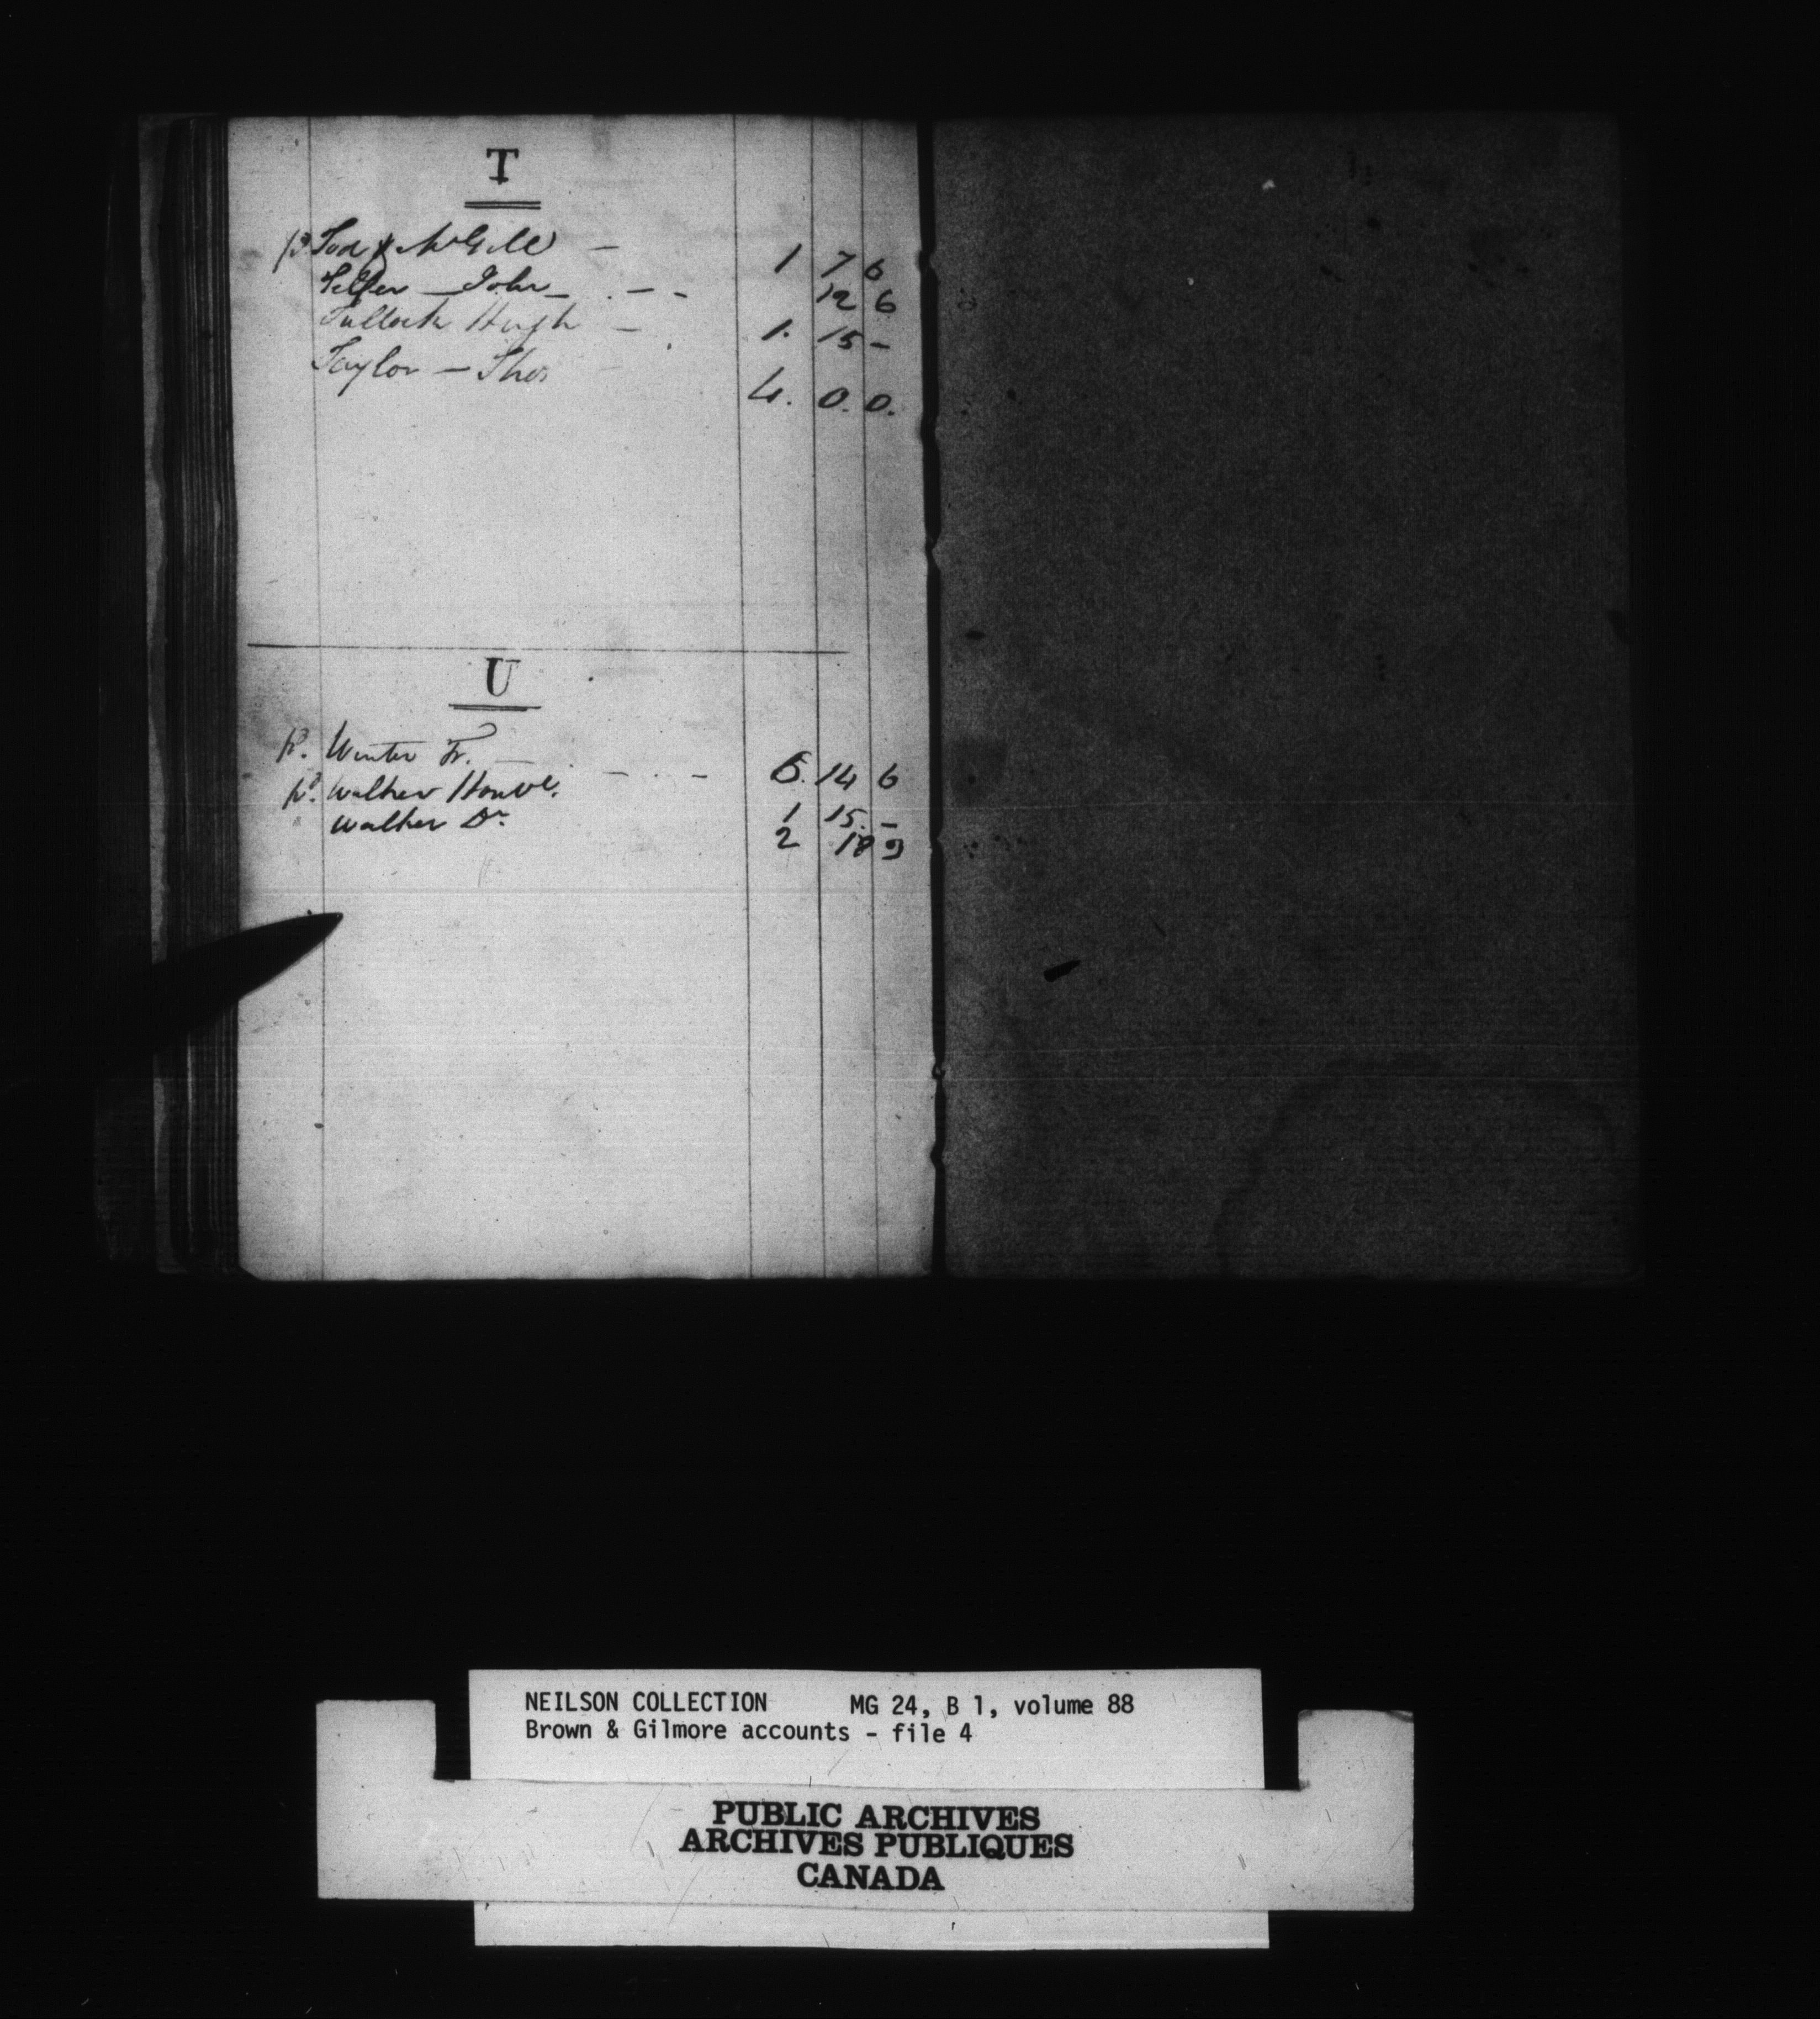 T
pd Tod & McGill – 1 7 6
Telfer – John – . – - 12 6
Tullock Hugh – 1. 15 –
Taylor – Thos 4. 0. 0.
U
pd. Winter Fr. – . – . – 6. 14 6
pd. Walker
Walker Dr 1 15. –
2 18 9
NEILSON COLLECTION MG 24, B 1, volume 88
Brown & Gilmore accounts - file 4
PUBLIC ARCHIVES
ARCHIVES PUBLIQUES
CANADA